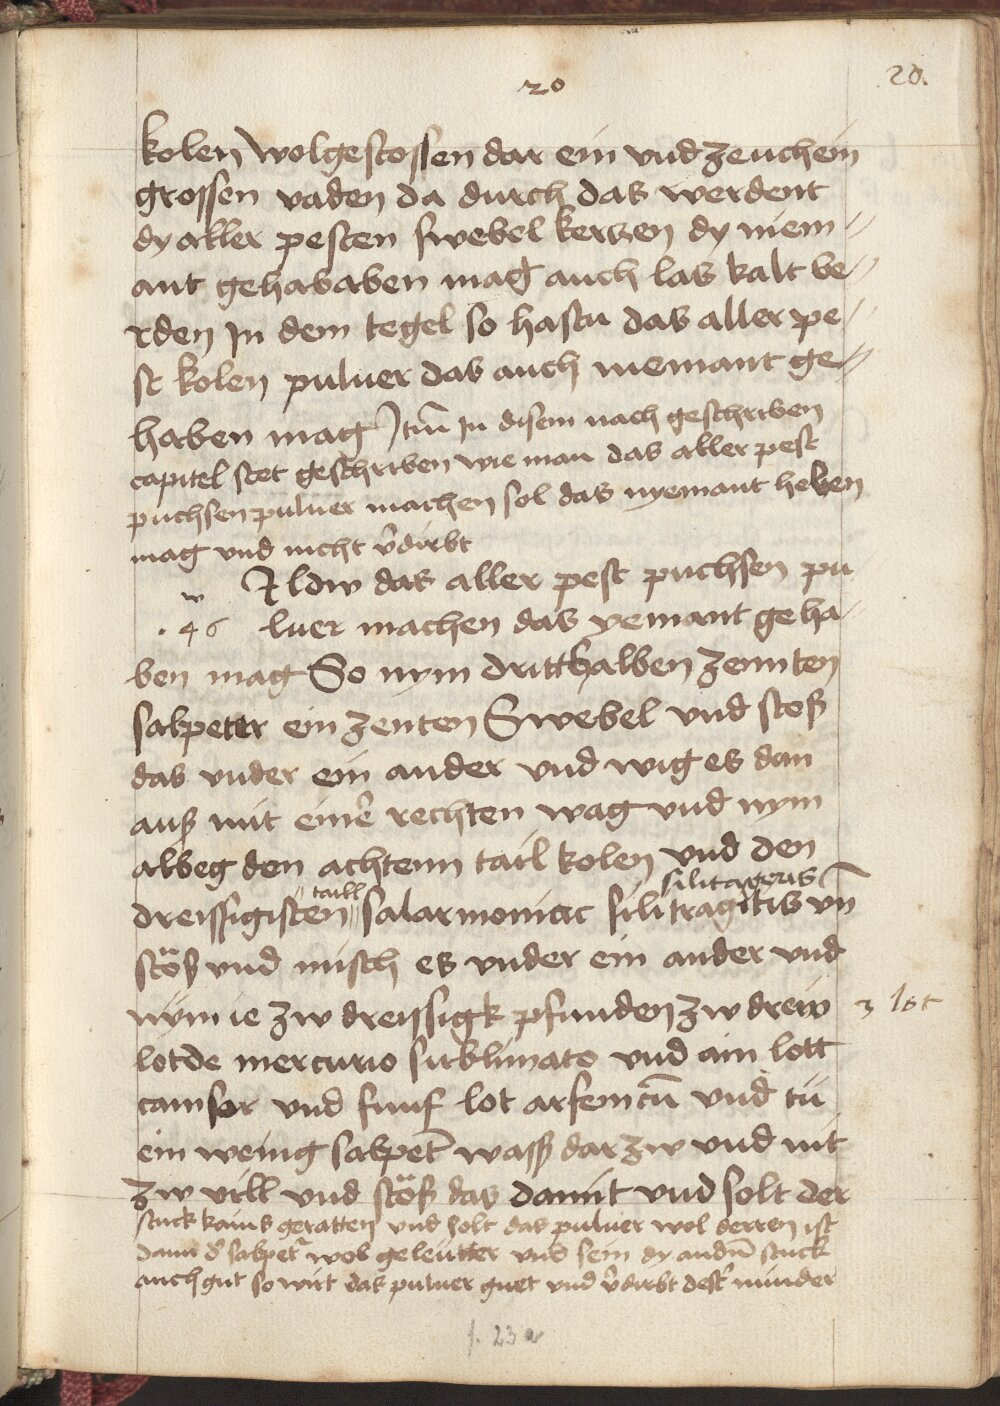 20
20.
kolen wolgestossen dar ein vnd zeuch ein
grossen vaden da durch das werdent
dy aller pesten swebel kerczen dy niem-
ant gehababen mag auch las kalt be-
rden In dem tegel so hastu das aller pe-
st kolen puluer das auch niemant ge-
haben mag Itm̄ In disem nach geschriben
capitel stet geschriben wie man das aller pest
puchsen puluer machen sol das nyemant heben
mag vnd nicht v̄dirbt
Ildw das aller pest puchsen pu
w
.46 luer machen das yemant geha-
ben mag So nym dritthalben zennten
salpetter ein zenten Swebel vnd stoß
das vnder ein ander vnd wig es dan
auß mit einē rechten wag vnd nym
albeg den achtenn tail kolen vnd den
taill silitageris
dreissigisten salarmoniac silitragitis vn̄
stöß vnd misch es vnder ein ander vnd
nÿm ie zw dreissigk pfunden zw dreiw
3 lot
lot de mercurio sublimato vnd ain lott
camfor vnd funf lot arsenicū vnd tü
ein wenig salpet̄ wasß dar zw vnd nit
zw vill vnd stöß das damit vnd solt der
stuck kains geratten vnd solt das puluer wol derren ist
dann d̄ salpet̄ wol geleutter vnd sein dy andn̄ stuck
auch gut so wirt das puluer guet vnd v̄dirbt dest̄ minder
f. 23 a